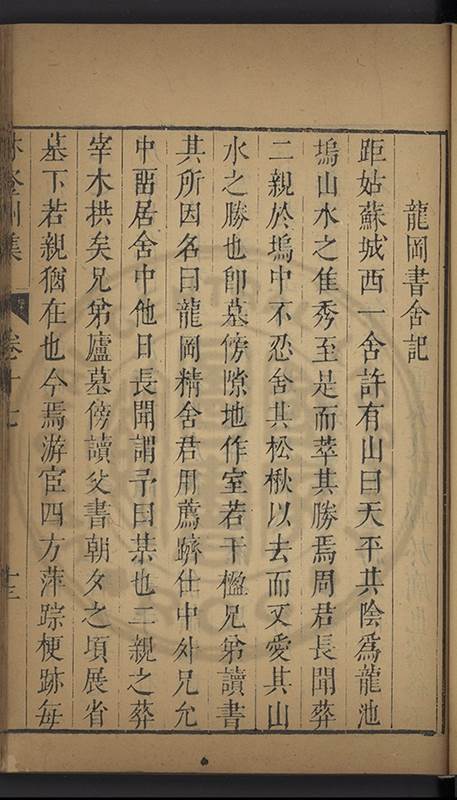 龍岡書舍記
距姑蘇城西一舍許有山曰天平其陰爲龍池
塢山水之隹秀至是而萃其勝焉周君長聞葬
二親於塢中不忍舍其松楸以去而又愛其山
水之勝也卽墓傍隙地作室若干楹兄弟讀書
其所因名曰龍岡精舍君用薦躋仕中外兄允
中畱居舍中他日長聞謂予曰某也二親之葬
宰木拱矣兄弟廬墓傍讀父書朝夕之頃展省
墓下若親猶在也今焉游宦四方萍踪梗跡每
林登州集
卷十七
十三